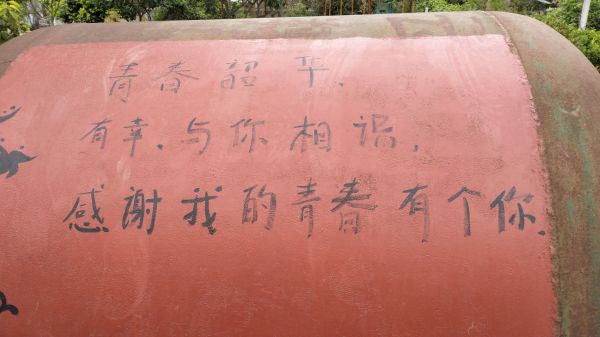 青春韶华、
有幸、与你相遇，
感谢我的青春有个你.